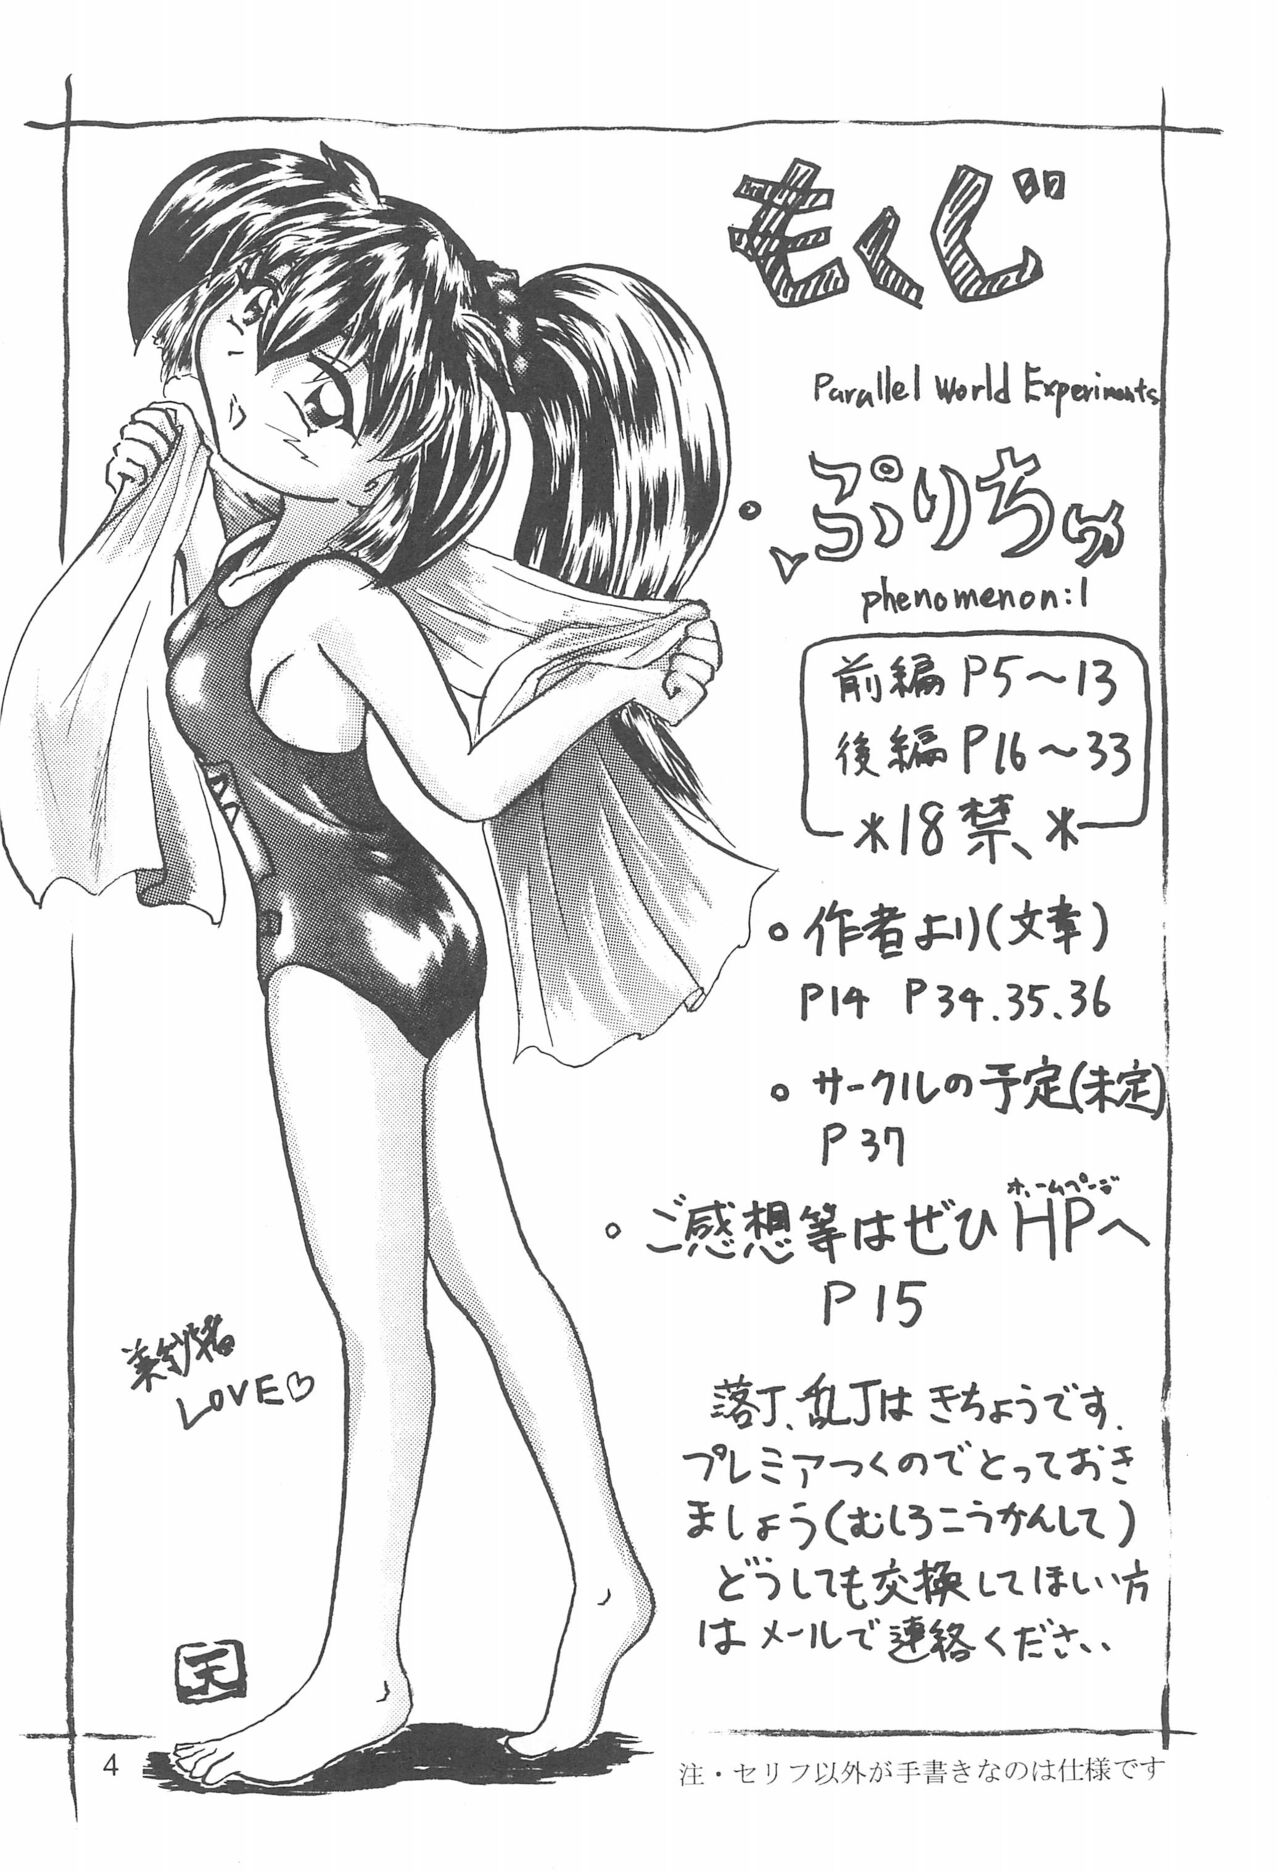 もくじ
Parallel World Experiments
・ぷりちゅ
phenomenon:1
前編 P5〜13
後編 P16〜33
＊18禁＊
。作者より(文章)
P14 P34.35.36
。サークルの予定(未定)
P37
ホームページ
。ご感想等はぜひHPへ
P15
LOVE♡
落丁、乱丁はきちょうです.
プレミアつくのでとっておき
ましょう(むしろこうかんして)
どうしても交換してほしい方
はメールで連絡ください
天
4
注・セリフ以外が手書きなのは仕様です